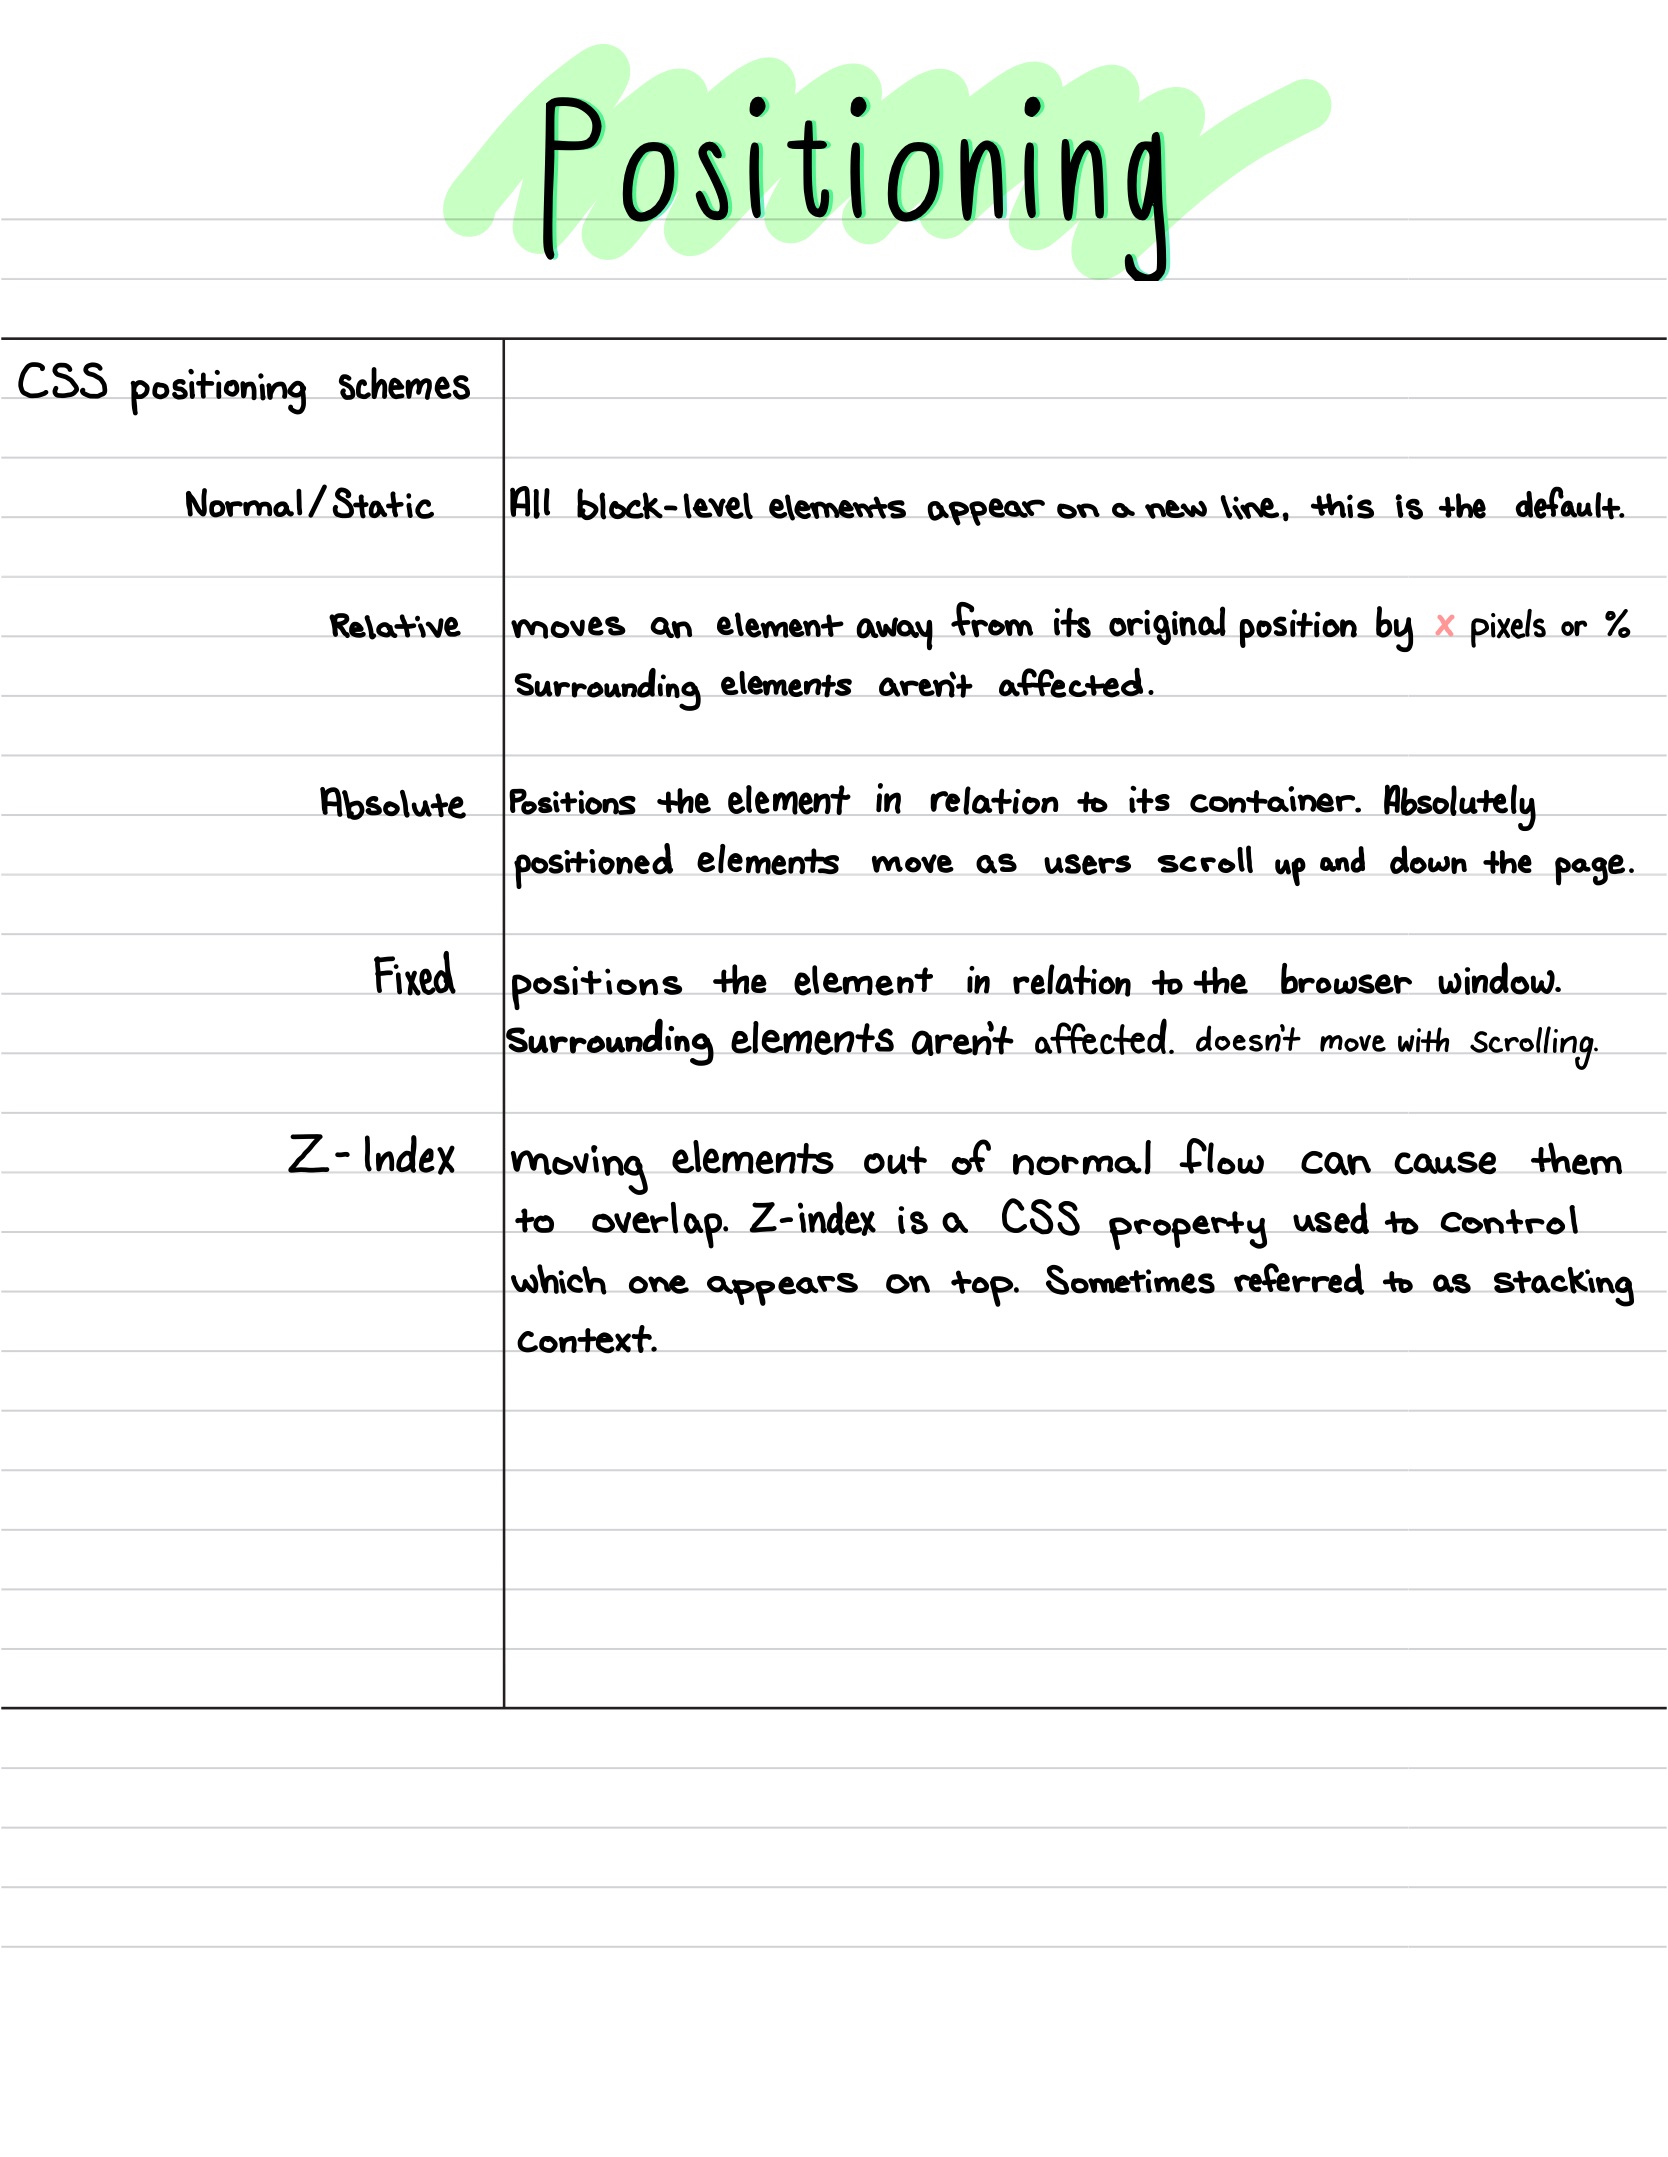 Positioning
CSS positioning schemes
Normal/Static All block-level elements appear on a new line, this is the default.
Relative moves an element away from its original position by x pixels or %
Surrounding elements aren't affected.
Absolute Positions the element in relation to its container. Absolutely
positioned elements move as users scroll up and down the page.
Fixed positions the element in relation to the browser window.
Surrounding elements aren't affected. doesn't move with scrolling.
Z-Index moving elements out of normal flow can cause them
to overlap. Z-index is a CSS property used to control
which one appears on top. Sometimes referred to as stacking
context.